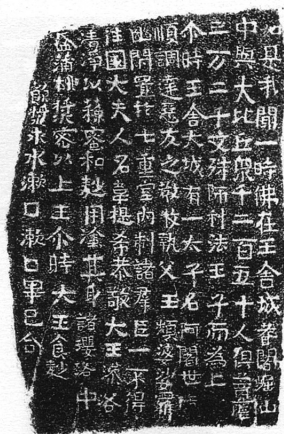 如是我聞一時佛在王舍城耆闍崛山
中與大比丘衆千二百五十人俱菩薩
三万二千文殊師利法王子而為上
尒時王舍大城有一太子名阿闍世
順調達惡友之教收執父王頻婆娑羅
幽閉置於七重室內制諸群臣一不得
往國大夫人名韋提希恭敬大王澡浴
清淨以穌蜜和麨用塗其身諸瓔珞中
盛蒲桃漿密以上王尒時大王食麨
飲漿求水漱口漱口畢已合